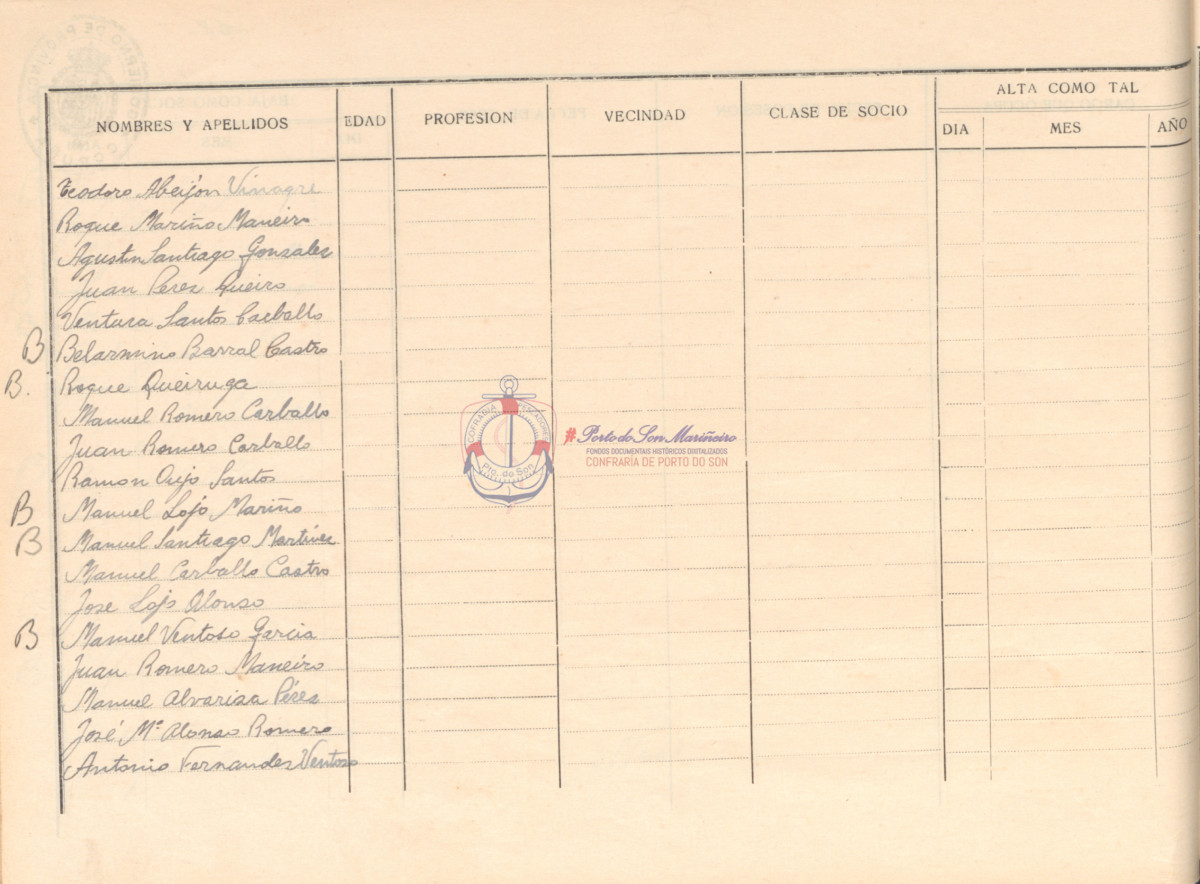 ALTA COMO TAL
NOMBRES Y APELLIDOS EDAD PROFESION VECINDAD CLASE DE SOCIO DIA MES AÑO
Teodoro Abeijón Vinagre
Roque Mariño Maneiro
Agustin Santiago Gonzalez
Juan Perez Queiro
Ventura Santos Carballo
B Belarmino Barral Castro
B. Roque Queiruga
Manuel Romero Carballo
Juan Romero Carballo
Ramon Santos
B Manuel Lojo Mariño
B Manuel Santiago Martinez
Manuel Carballo Castro
Jose Lojo Alonso
B Manuel Ventoso Garcia
Juan Romero Maneiro
Manuel Alvariza Pérez
José Mª Alonso Romero
Antonio Fernandez Ventoso
COFRADIA PESCADORES
Pto. do Son
# Porto do Son Mariñeiro
FONDOS DOCUMENTAIS HISTÓRICOS DIXITALIZADOS
CONFRARÍA DE PORTO DO SON